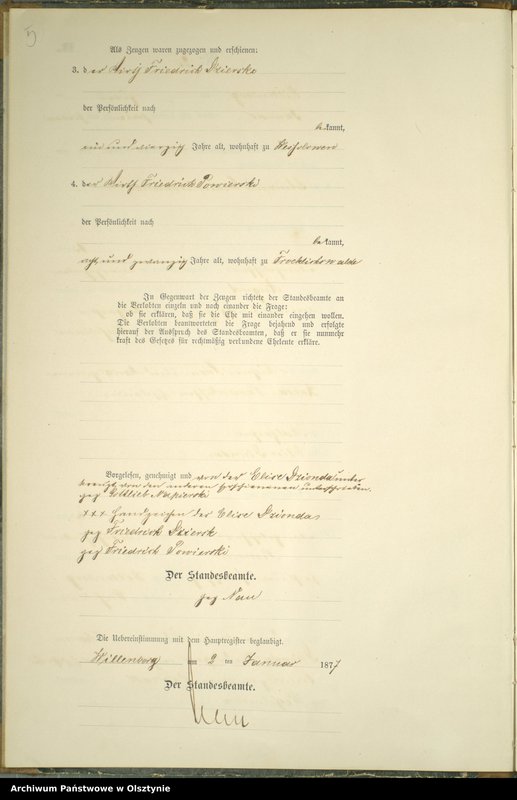 5
Als Zeugen waren zugezogen und erschienen:
3. der Wirth Friedrich Dziersko
der Persönlichkeit nach
bekannt,
ein und vierzig Jahre alt, wohnhaft zu Wessolowen
4. der Wirth Friedrich Powierski
der Persönlichkeit nach
bekannt,
acht und zwanzig Jahre alt, wohnhaft zu
In Gegenwart der Zeugen richtete der Standesbeamte an
die Verlobten einzeln und nach einander die Frage:
ob sie erklären, daß sie die Ehe mit einander eingehen wollen.
Die Verlobten beantworteten die Frage bejahend und erfolgte
hierauf der Ausspruch des Standesbeamten, daß er sie nunmehr
kraft des Gesetzes für rechtmäßig verbundene Eheleute erkläre.
Vorgelesen, genehmigt und von der Elise Dzionda unter
kreuzt von den anderen Erschienenen unterschrieben.
gez Gottlieb Napierski
+++ Handzeichen der Elise Dzionda
gez Friedrich Dziersk
gez Friedrich Powierski
Der Standesbeamte.
gez Nau
Die Uebereinstimmung mit dem Hauptregister beglaubigt.
Willenberg am 2 ten Januar 1877
Der Standesbeamte.
Nau
Archiwum Państwowe w Olsztynie